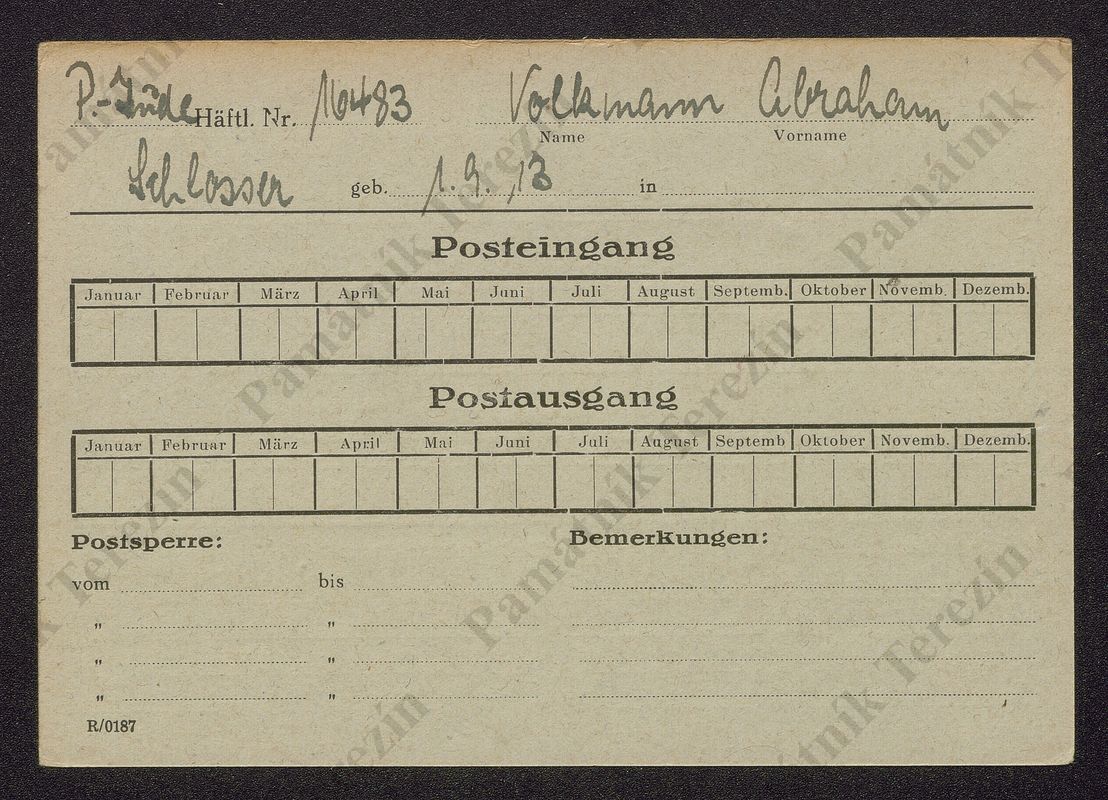 P.-Jude Häftl. Nr. 116483 Volkmann Abraham
Name Vorname
Schlosser geb. 1.9.13 in
Posteingang
Januar Februar März April Mai Juni Juli August Septemb. Oktober Novemb. Dezemb.
Postausgang
Januar Februar März April Mai Juni Juli August Septemb Oktober Novemb. Dezemb.
Postsperre: Bemerkungen:
vom bis
" "
" "
" "
R/0187
Památník Terezín